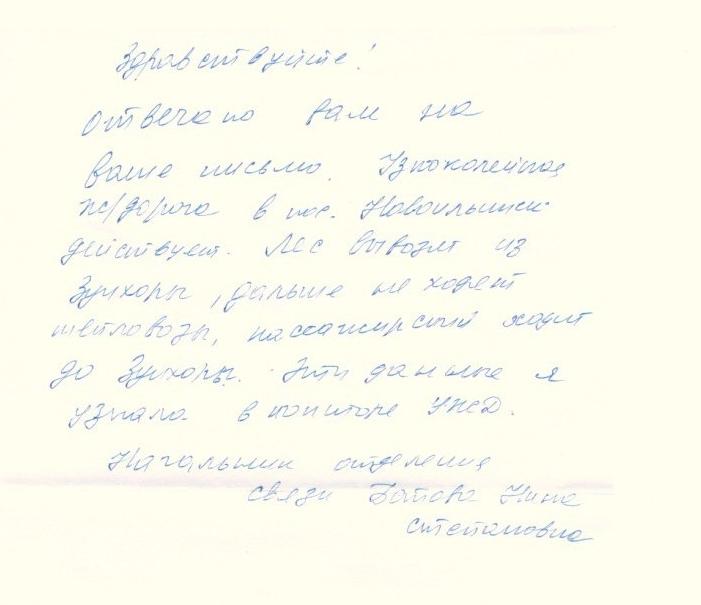 Здравствуйте!
Отвечаю вам на
ваше письмо. Узкоколейная
ж/дорога в пос. Новоильинск
действует. Лес вывозят из
Зунхоры, дальше не ходят
тепловозы, пассажирский ходит
до Зунхоры. Эти данные я
узнала в конторе УЖД.
Начальник отделения
связи Батова Нина
Степановна